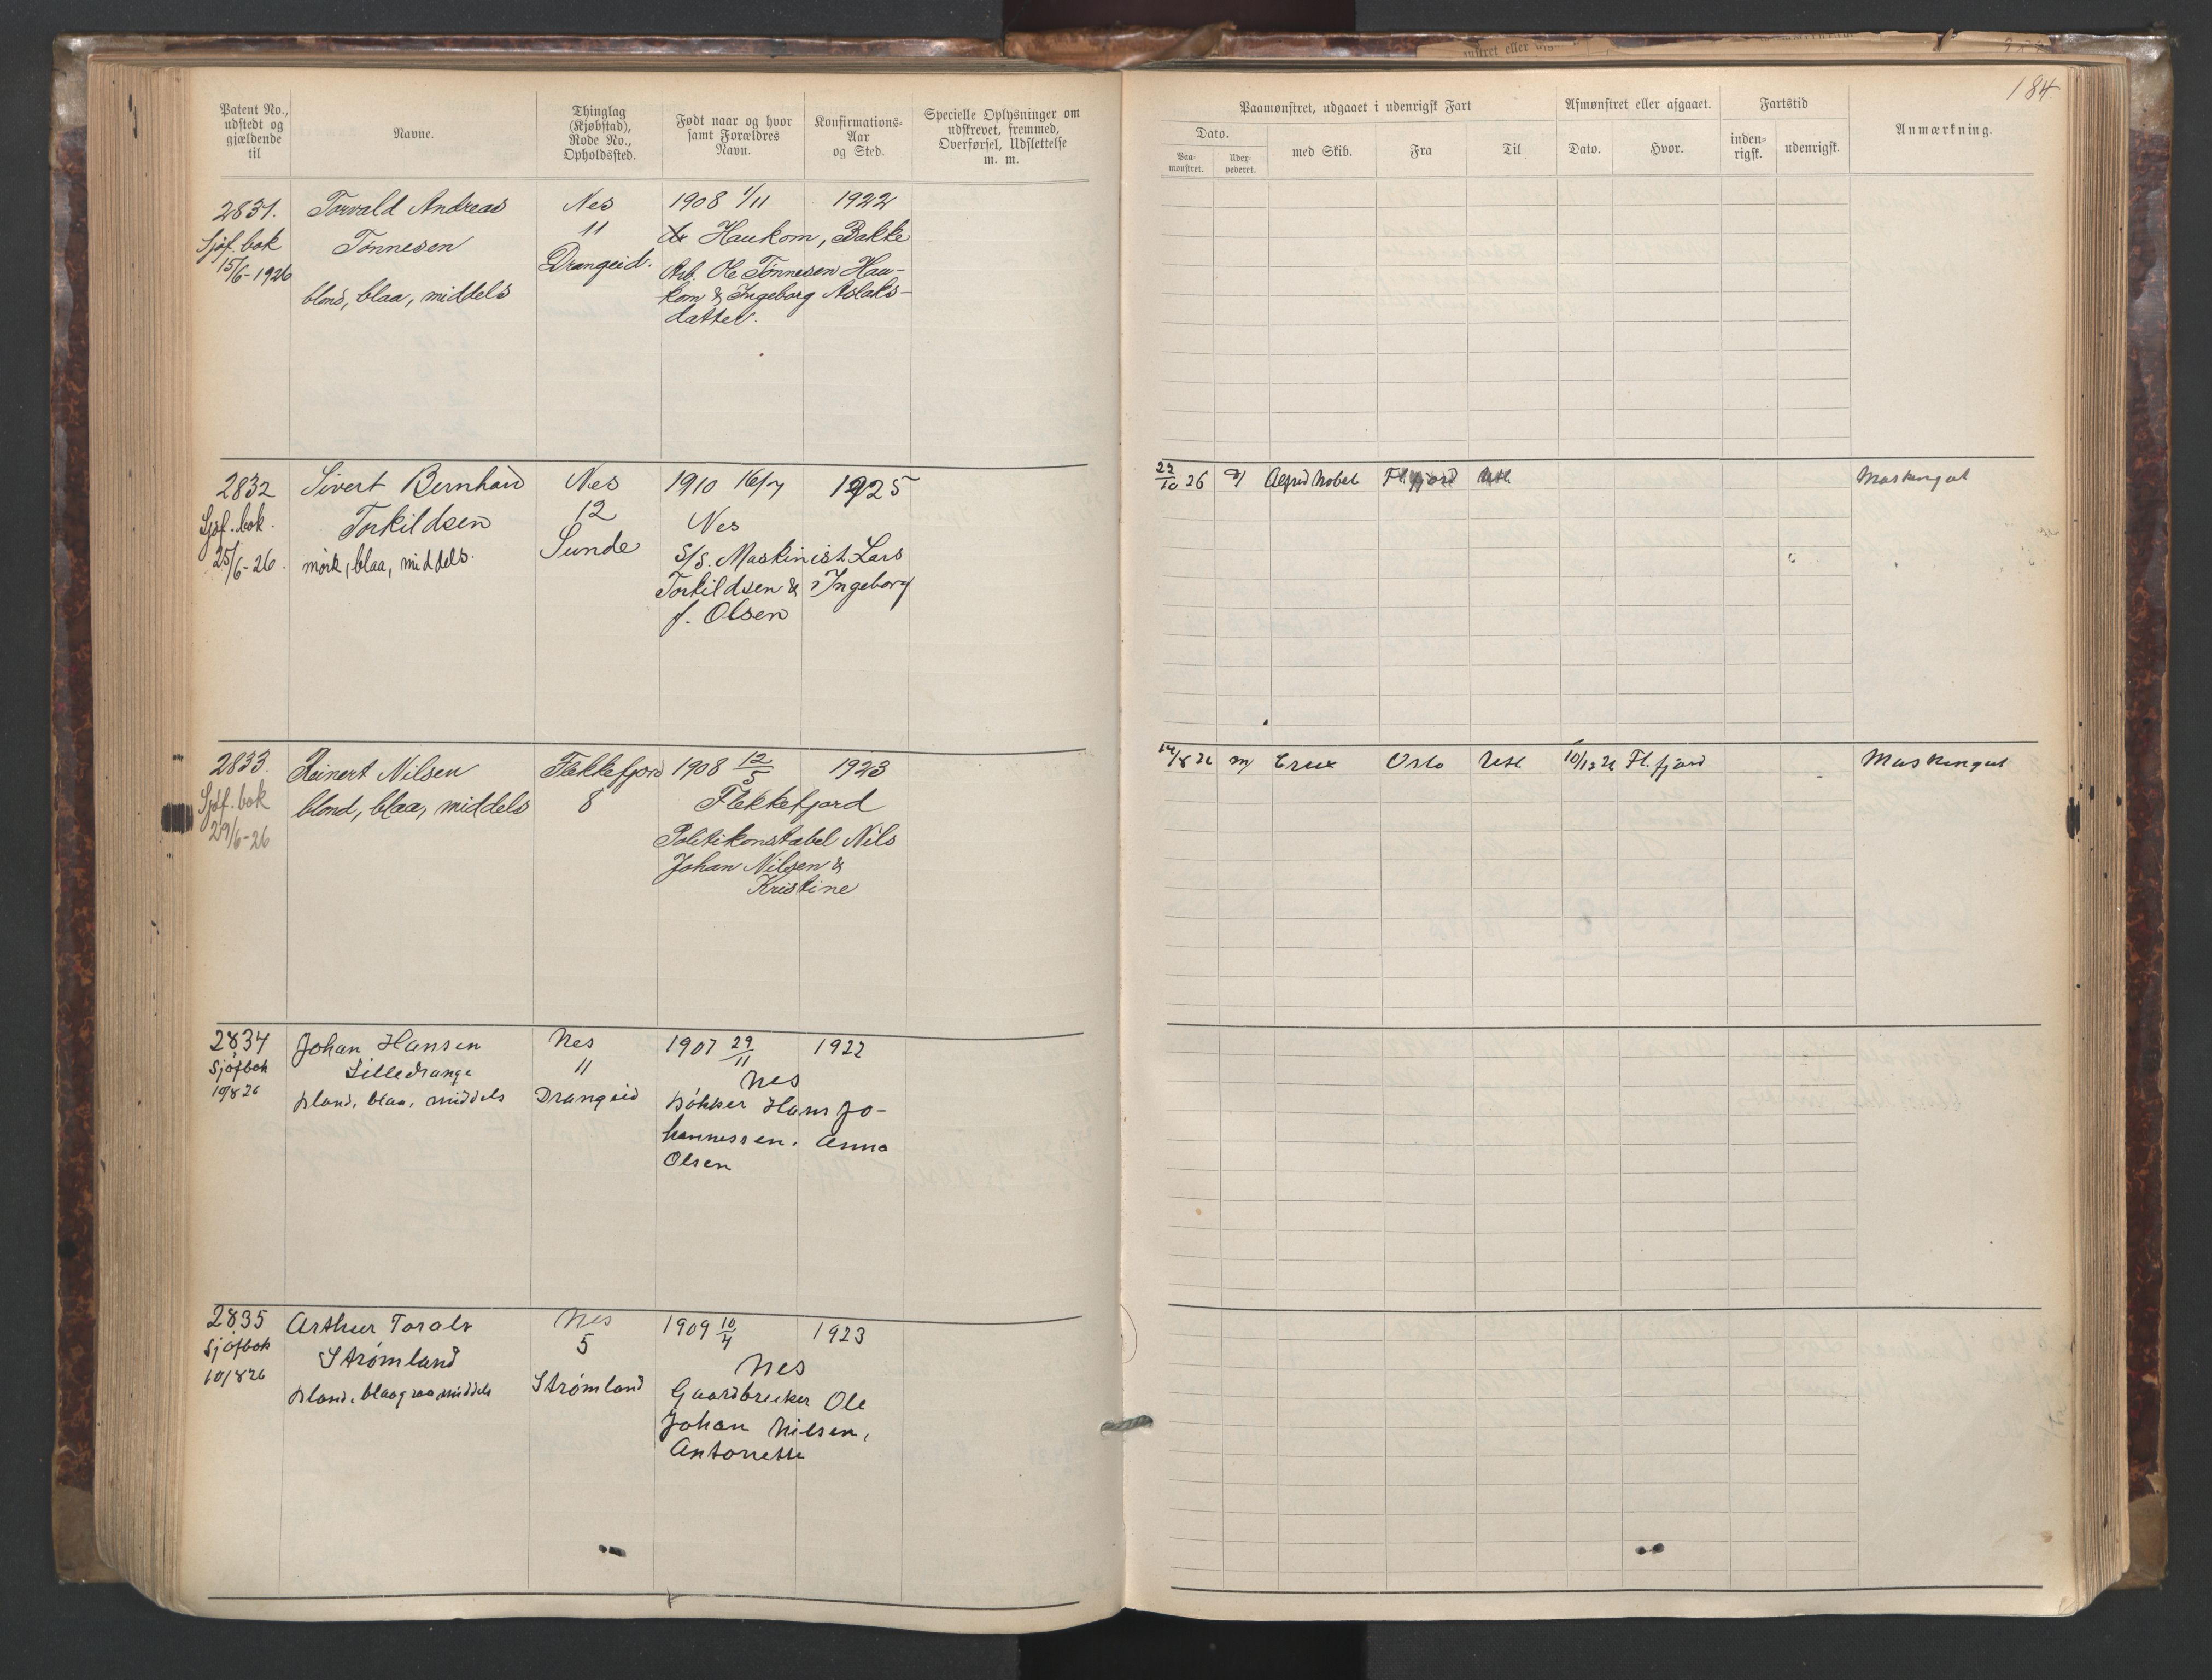 Patent No., udstedt og gjældende til
Navne.
Thinglag (Kjøbstad), Rode No., Opholdssted.
Født naar og hvor samt Forældres Navn.
Konfirmations-Aar og Sted.
Specielle Oplysninger om udskrevet, fremmed, Overførsel, Udslettelse m. m.
2831.
Sjøf. bok
15/6-1926
Torvald Andreas
Tønnesen
blond, blaa, middels
Nes
11
Drangeid.
1908 1/11
1922
Haukom, Bakke
Arb. Ole Tønnesen Hau-
kom & Ingeborg Aslaks-
datter.
2832
Sjøf. bok.
25/6-26.
Sivert Bernhard
Torkildsen
mørk, blaa, middels.
Nes
12
Sunde
1910 16/7
1925
Nes
S/S. Maskinist Lars
Torkildsen & Ingeborg
f. Olsen
2833.
Sjøf. bok
29/6-26
Reinert Nilsen
blond, blaa, middels
Flekkefjord
8
1908 12/5
1923
Flekkefjord
Politikonstabel Nils
Johan Nilsen &
Kristine
2834
Sjøfbok
10/8 26
Johan Hansen
Lilledrange
blond, blaa, middels
Nes
11
Drangeid
1907 29/11
1922
Nes
Bøkker Hans Jo-
hannessen. Anna
Olsen
2835
Sjøfbok
10/8 26
Arthur Toralv
Strømland
blond, blaagraa middels
Nes
5
Strømland
1909 10/4
1923
Nes
Gaardbruker Ole
Johan Nilsen,
Antonette
184.
Paamønstret, udgaaet i udenrigsk Fart
Afmønstret eller afgaaet.
Fartstid
Anmærkning.
Dato.
Paa-mønstret.
Uder-pederet.
med Skib.
Fra
Til
Dato.
Hvor.
inden-rigsk.
udenrigsk.
22/10 26
Alfred Nobel
Fl.fjord
Utl
Maskingut
14/8 26
m/
Crux
Oslo
Utl
10/12 26
Fl. fjord
Maskingut